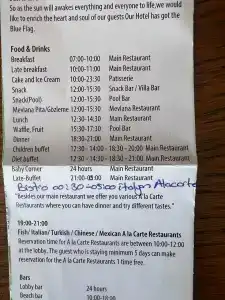 So as the sun will awakes everything and everyone to life,we would
like to enrich the heart and soul of our guests Our Hotel has got the
Blue Flag.
Food & Drinks
Breakfast 07:00-10:00 Main Restaurant
Late breakfast 10:00-11:00 Main Restaurant
Cake and Ice Cream 10:00-23:30 Patisserie
Snack 12:00-15:30 Snack Bar / Villa Bar
Snack(Pool) 12:00-15:30 Pool Bar
Mevlana Pita/Gözleme 12:00-15:30 Mevlana Restaurant
Lunch 12:30-14:30 Main Restaurant
Waffle, Fruit 15:30-17:30 Pool Bar
Dinner 18:30-21:00 Main Restaurant
Children buffet 12:30 - 14:00 - 18:30 - 20:00 Main Restaurant
Diet buffet 12:30 - 14:30 - 18:30 - 21:00 Main Restaurant
Baby Corner 24 hours Main Restaurant
Late-Buffet Main Restaurant
Bistro 00:30-05:00 Alacarte
"Besides our main restaurant we offer you various A la Carte
Restaurants where you can have dinner and try different tastes."
19:00-21:00
Fish/ Italian/ Turkish / Chinese / Mexican A la Carte Restaurants
Reservation time for A la Carte Restaurants are between 10:00-12:00
at the lobby. The guest who is staying minimum 5 days can make
reservation for the A la Carte Restaurants 1 time free.
Bars
Lobby bar 24 hours
Beach bar